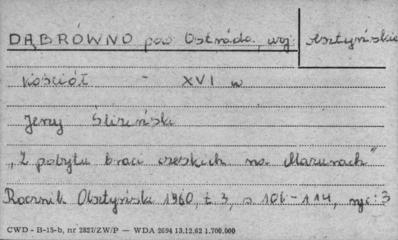 DĄBRÓWNO pow Ostróda, woj olsztyńskie
Kościół - XVI w
Jerzy Śliziński
„Z pobytu braci czeskich na Mazurach”
Rocznik Olsztyński 1960, t. 3, s 106-114, ryc: 3
CWD - B-15-b, nr 2827/ZW/P — WDA 2694 13.12.62 1.700.000